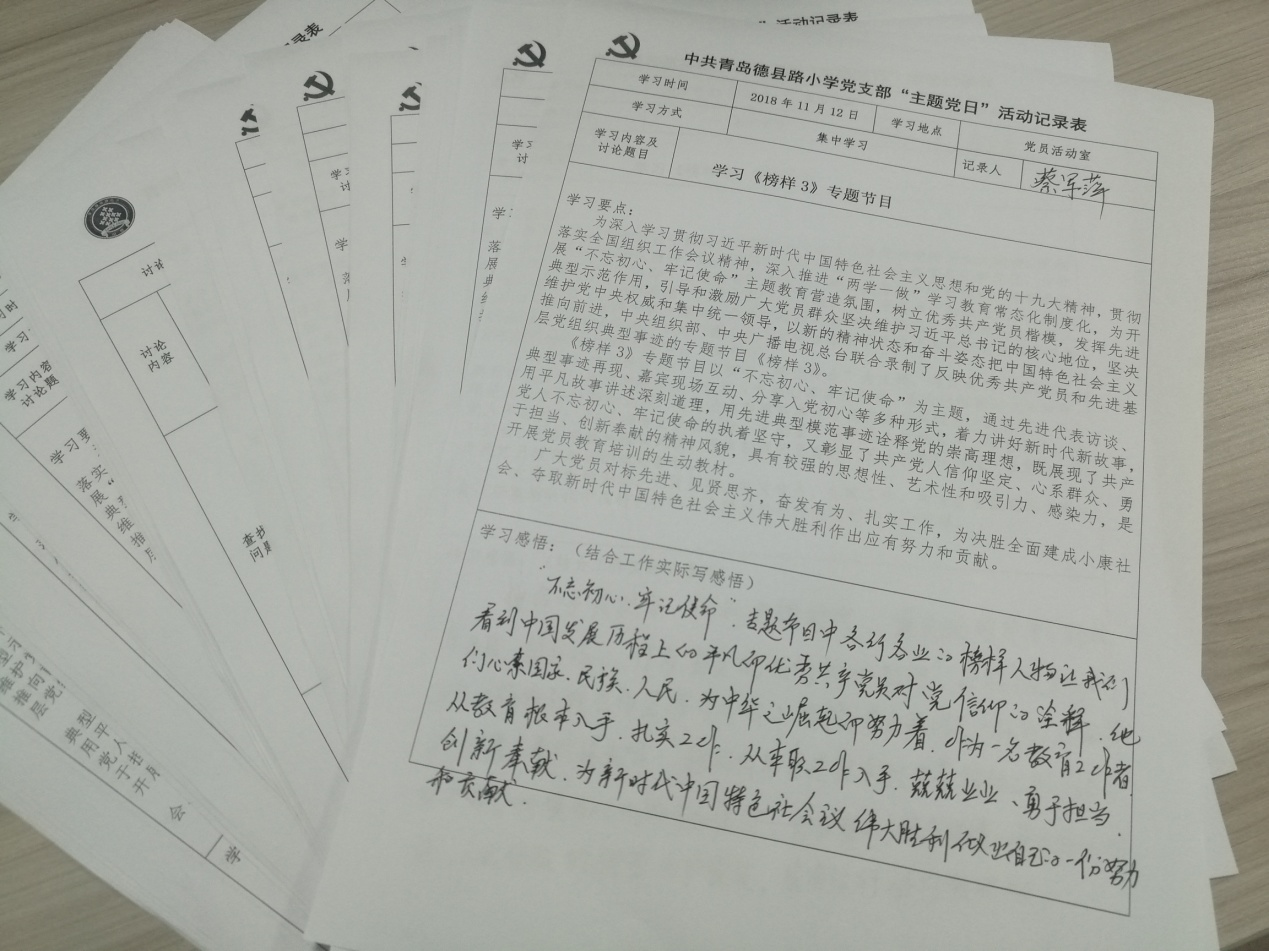 ”活动记录表
录表
中共青岛德县路小学党支部“主题党日”活动记录表
学习时间
2018 年 11 月 12 日
学习地点
党员活动室
学习方式
集中学习
记录人
蔡军萍
学习内容及
讨论题目
学习《榜样 3》专题节目
学习要点：
为深入学习贯彻习近平新时代中国特色社会主义思想和党的十九大精神，贯彻
落实全国组织工作会议精神，深入推进“两学一做”学习教育常态化制度化，为开
展“不忘初心、牢记使命”主题教育营造氛围，树立优秀共产党员楷模，发挥先进
典型示范作用，引导和激励广大党员群众坚决维护习近平总书记的核心地位，坚决
维护党中央权威和集中统一领导，以新的精神状态和奋斗姿态把中国特色社会主义
推向前进，中央组织部、中央广播电视总台联合录制了反映优秀共产党员和先进基
层党组织典型事迹的专题节目《榜样 3》。
《榜样 3》专题节目以“不忘初心、牢记使命”为主题，通过先进代表访谈、
典型事迹再现、嘉宾现场互动、分享入党初心等多种形式，着力讲好新时代新故事，
用平凡故事讲述深刻道理，用先进典型模范事迹诠释党的崇高理想，既展现了共产
党人不忘初心、牢记使命的执着坚守，又彰显了共产党人信仰坚定、心系群众、勇
于担当、创新奉献的精神风貌，具有较强的思想性、艺术性和吸引力、感染力，是
开展党员教育培训的生动教材。
广大党员对标先进、见贤思齐，奋发有为、扎实工作，为决胜全面建成小康社
会、夺取新时代中国特色社会主义伟大胜利作出应有努力和贡献。
学习感悟：（结合工作实际写感悟）
“不忘初心、牢记使命”专题节目中各行各业的榜样人物让我们
看到中国发展历程上的平凡而优秀共产党员对党信仰的诠释，他
们心系国家、民族、人民，为中华之崛起而努力着。作为一名教育工作者
从教育根本入手，扎实工作，从本职工作入手，兢兢业业、勇于担当，
创新奉献，为新时代中国特色社会主义伟大胜利做出自己的一份努力
和贡献。
讨论
内容
学习内容
讨论题
学习要
落实
展“
典
维
推